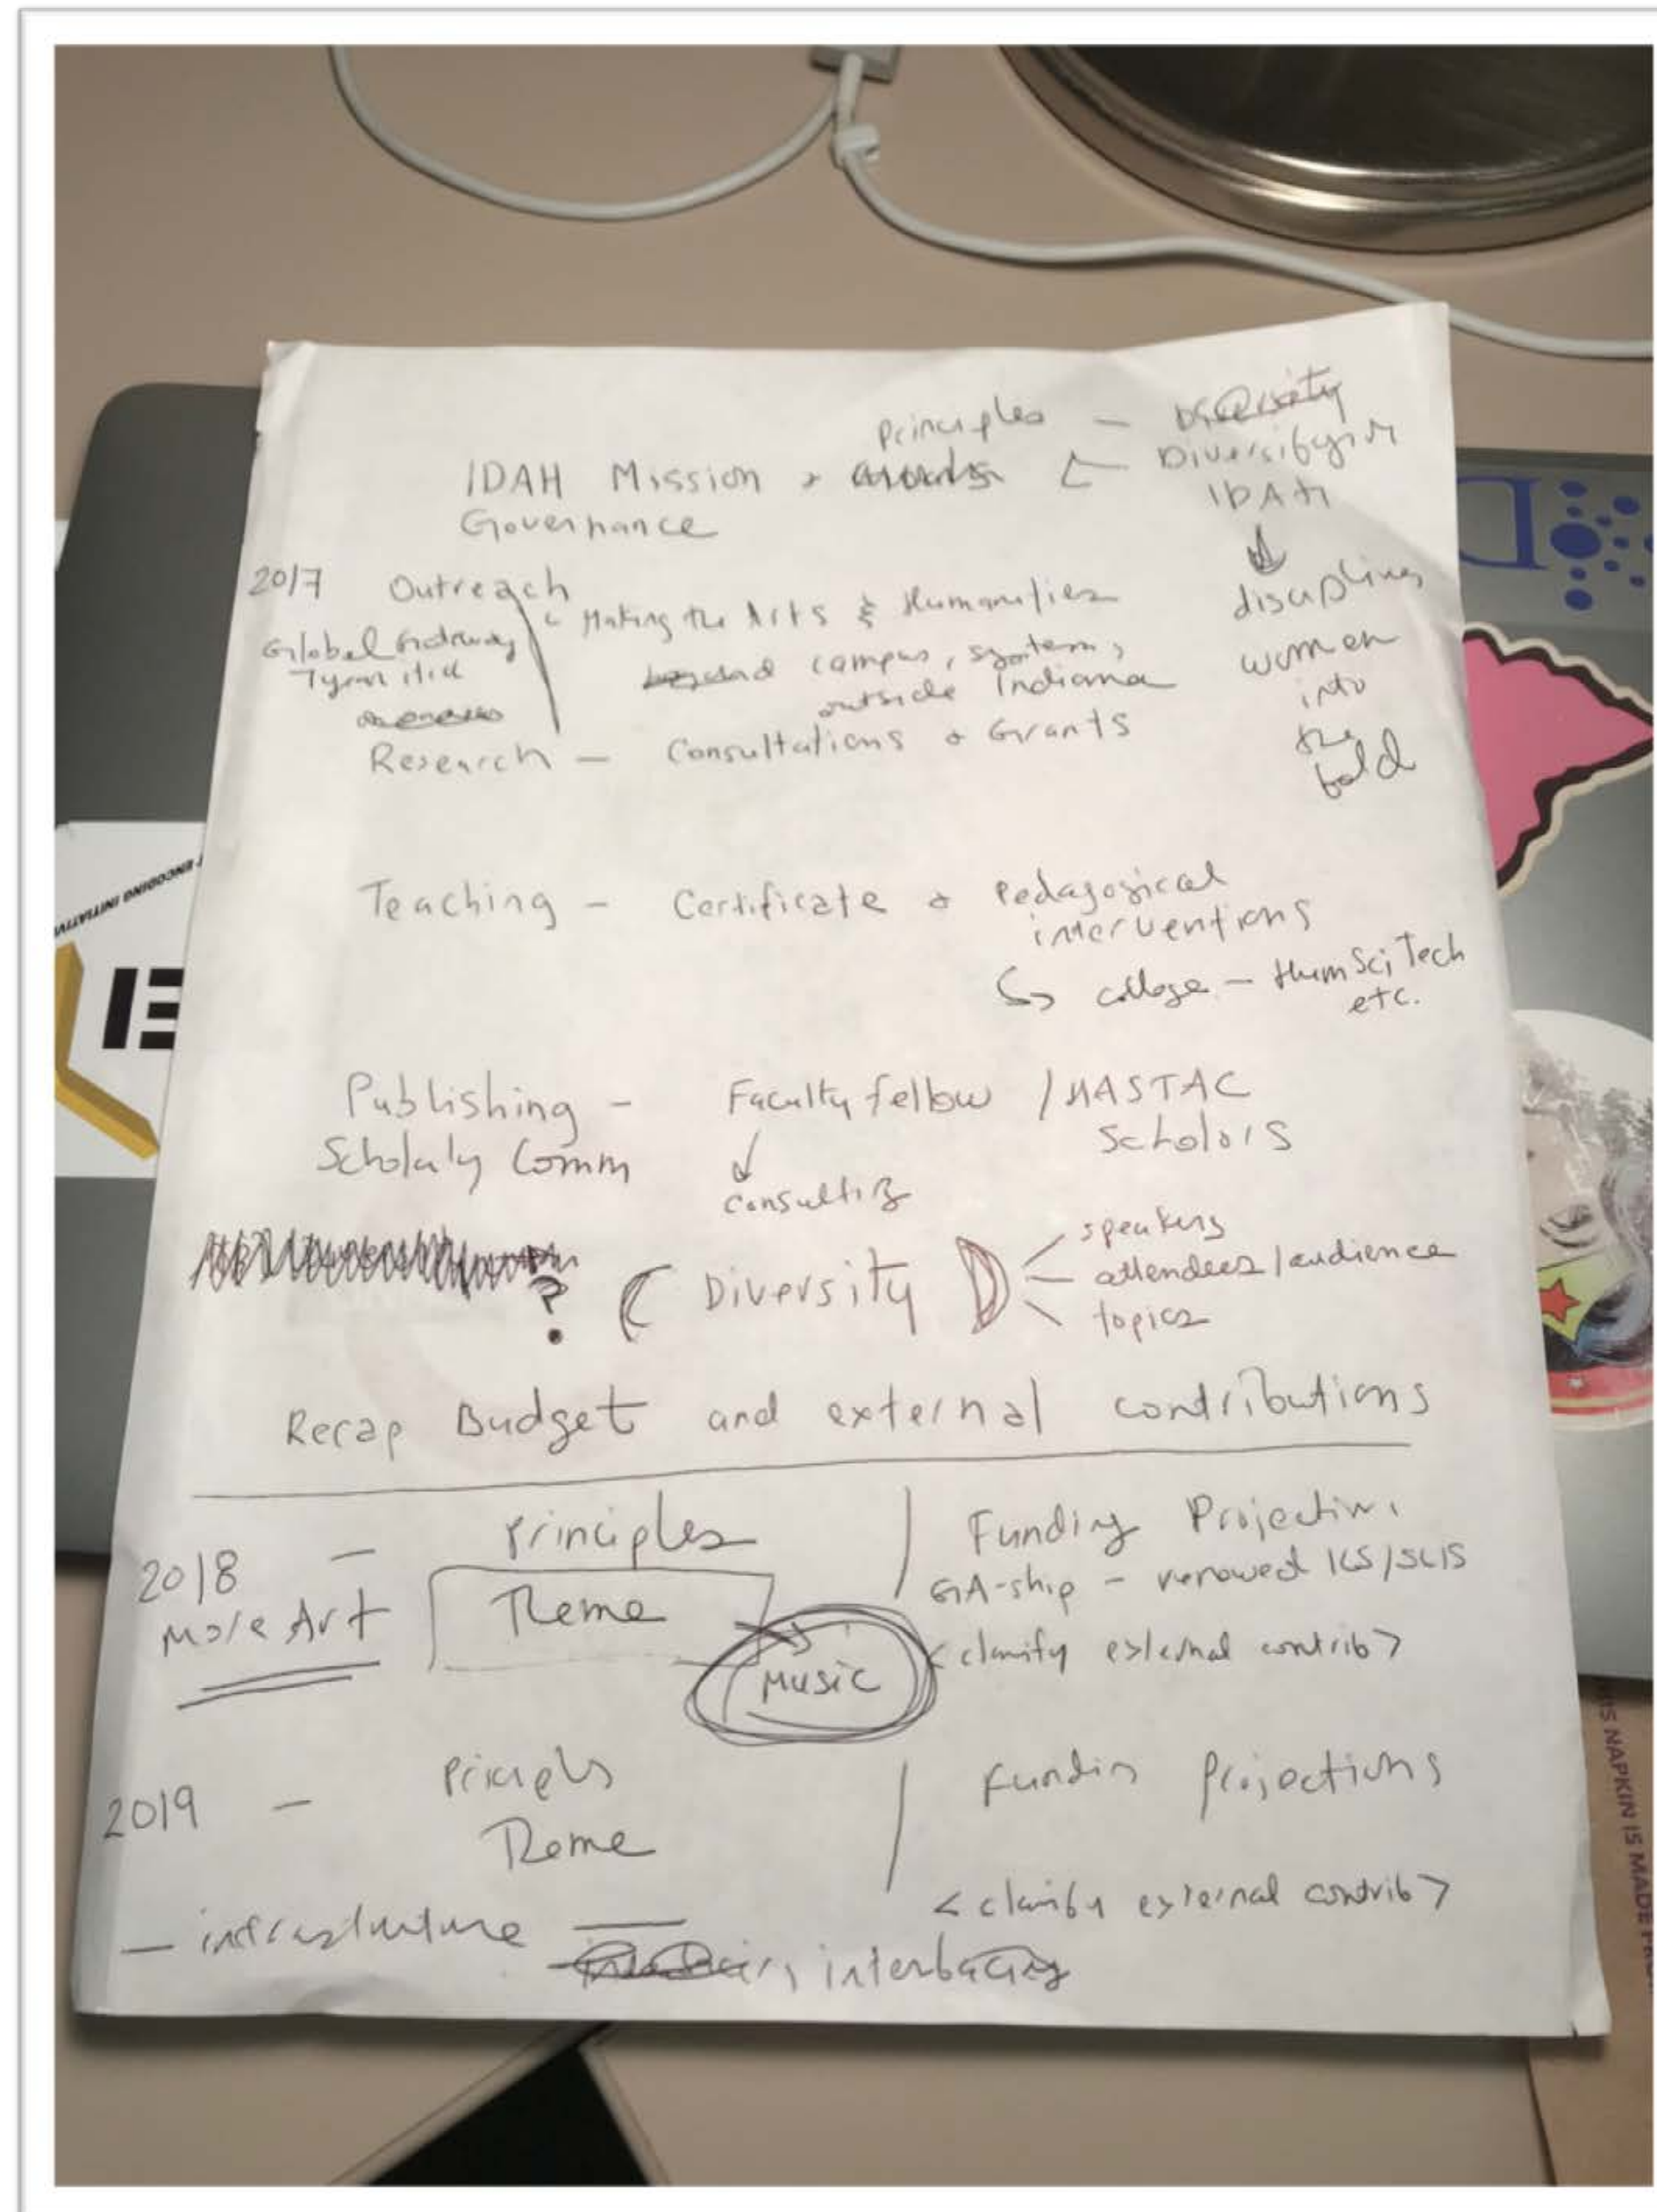 principles — Diversity
IDAH Mission + <
Diversifying
IDAH
Governance
disciplines
women
into
the
fold
2017 Outreach
< Making the Arts & Humanities
Global Gateway
beyond campus, system,
outside Indiana
Research — Consultations + Grants
Teaching - Certificate + Pedagogical
interventions
↳ college — HumSciTech
etc.
Publishing - Faculty fellow / HASTAC
Scholaly Comm
Scholars
consulting
? ( Diversity )
speakers
attendees / audience
topics
Recap Budget and external contributions
2018 — principles
More Art
Theme
Music
Funding Projections
GA-ship - renewed ICS/SLIS
<clarify external contrib>
2019 —
Theme
Funding Projections
<clarify external contrib>
— infrastructure
interfacing
ENCODING INITIATIV
THIS NAPKIN IS MADE FROM